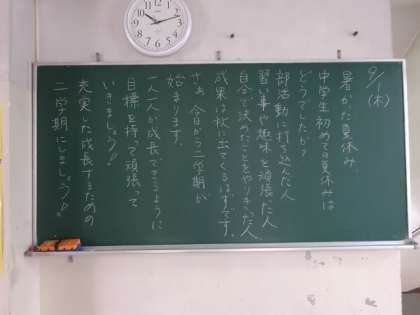 9/1
(木)
暑かった夏休み。
中学生初めての夏休みは
どうでしたか?
部活動に打ち込んだ人
習い事や趣味を頑張った人
自分で決めたことをやりきった人
成果は秋に出てくるはずです。
さぁ、今日から二学期が
始まります。
一人一人が成長できるように
目標を持って頑張って
いきましょう!!
充実した成長するための
二学期にしましょう!!